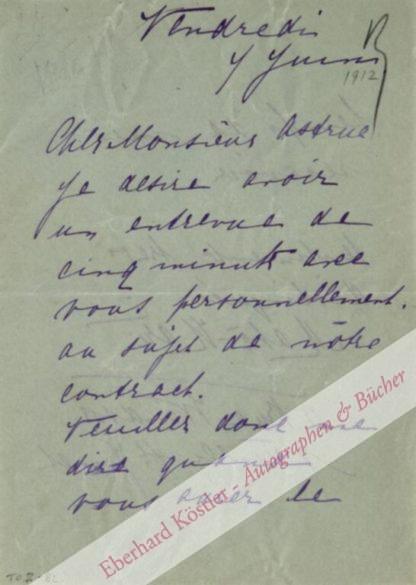 Vendredi
7 Juin
1912
Cher Monsieur Astruc
Je desire avoir
un entrevue de
cinq minuts avec
vous personnellement.
au sujet de nôtre
contract.
Veuillez donc me
dire quand
vous avez le
Eberhard Köstler - Autographen & Bücher